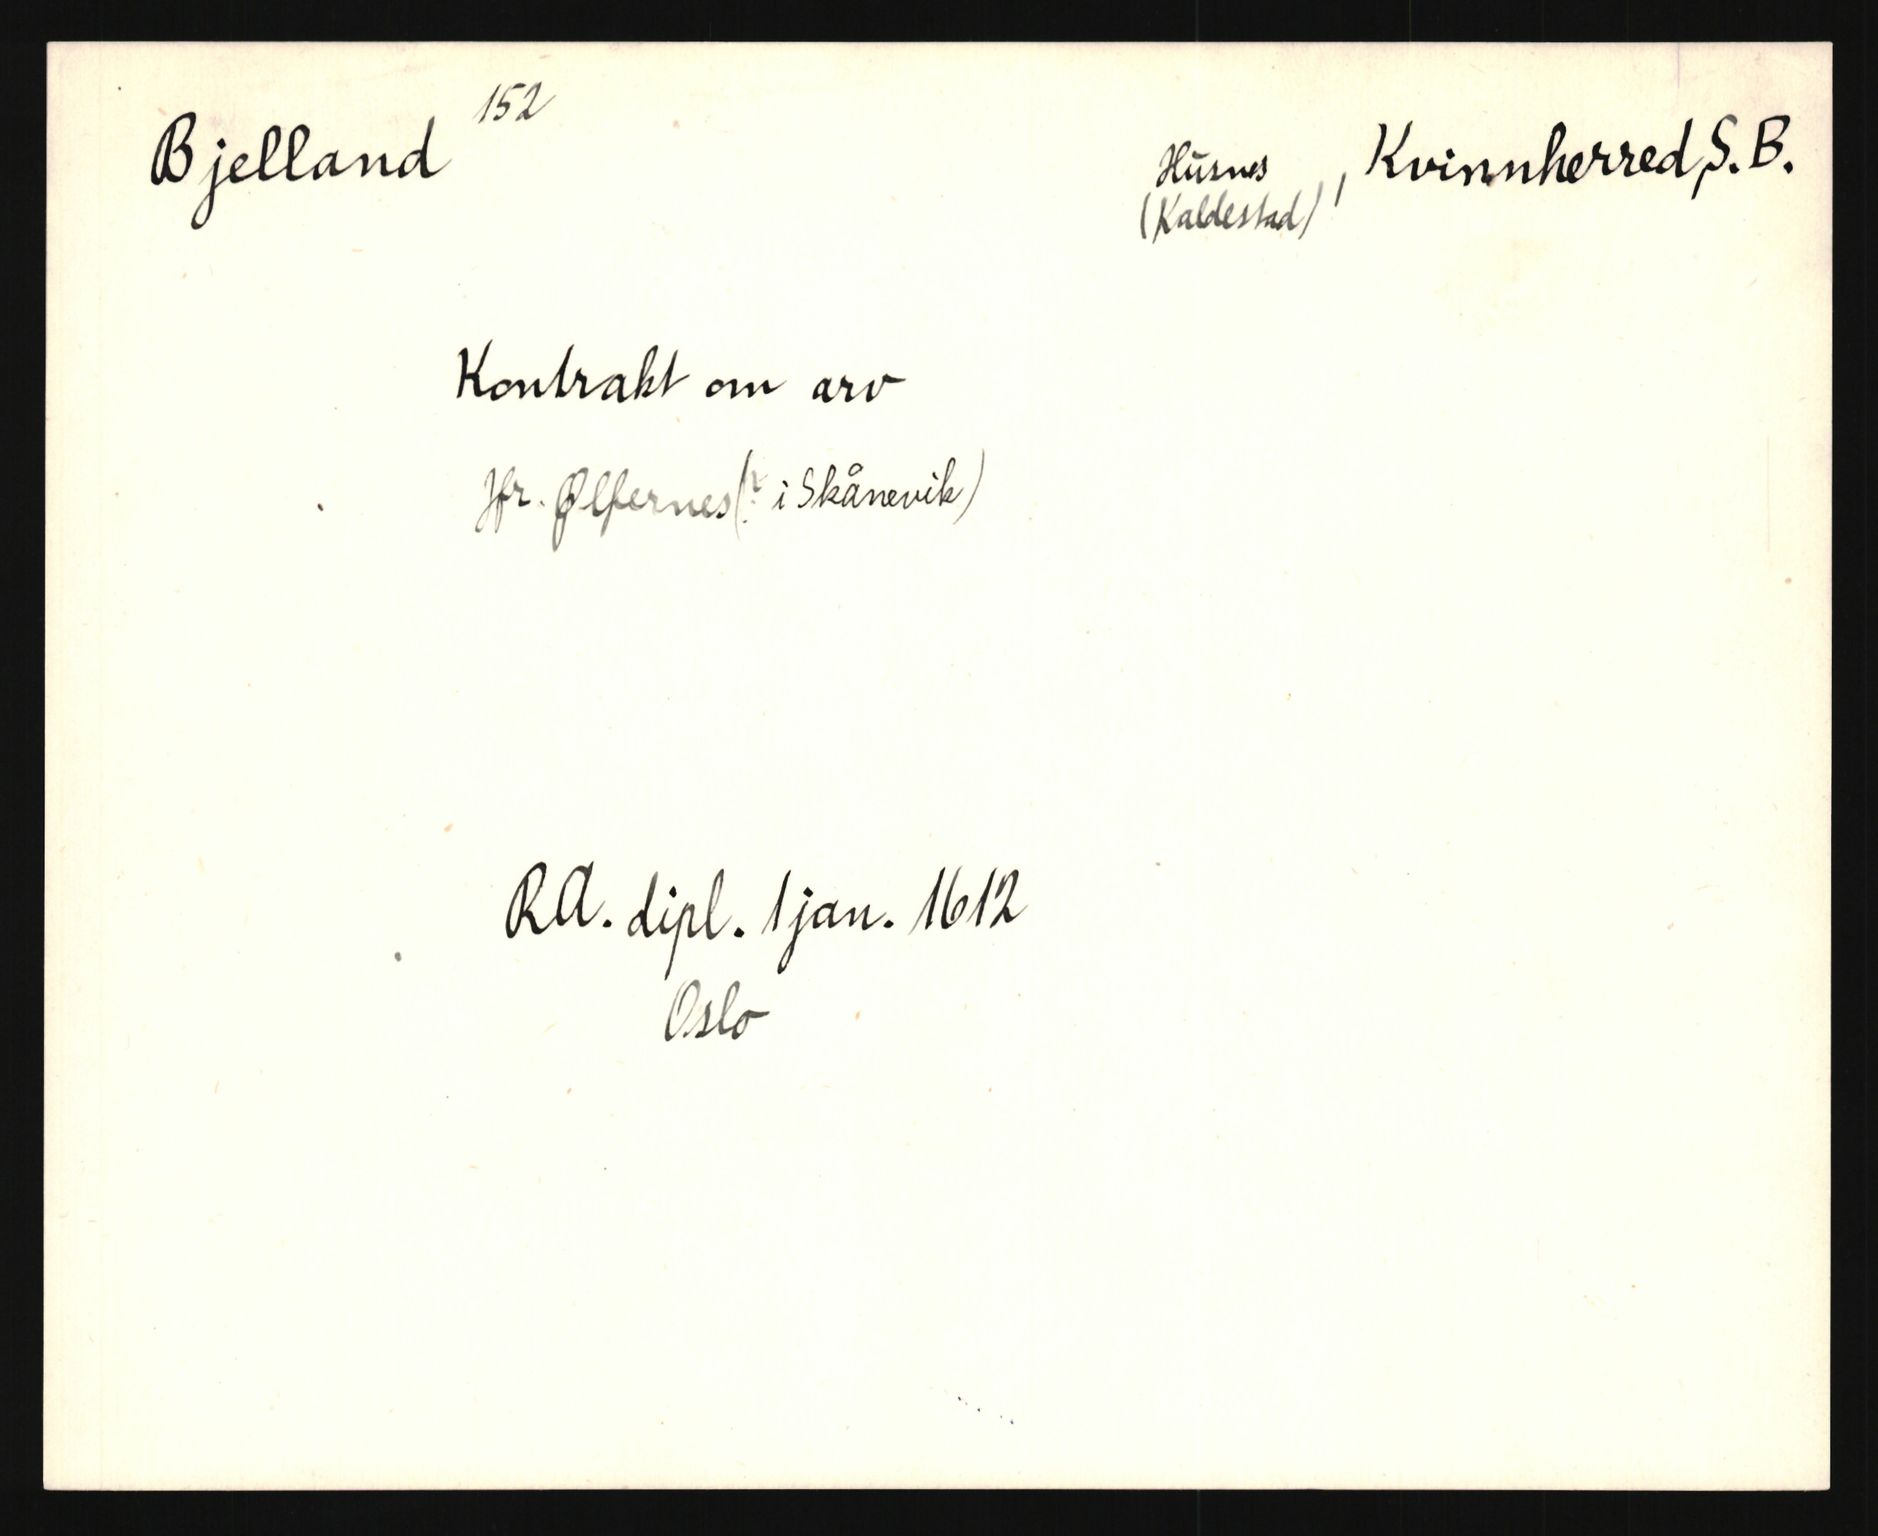 Bjelland 152
Husnes
(Kaldestad), Kvinnherred, S. B.
Kontrakt om arv
Jfr. Ølfernes (? i Skånevik)
RA. dipl. 1 jan. 1612
Oslo